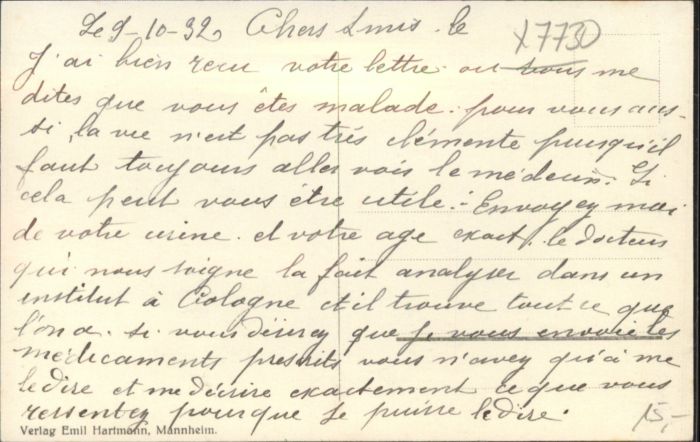 Le 9-10-32. Chers Amis. le
X7730
J'ai bien recu votre lettre. ou vous me
dites que vous êtes malade. pour vous aus-
si, la vie n'est pas très clémente puisqu'il
faut toujours aller voir le médecin. Si
cela peut vous être utile. Envoyez moi
de votre urine. et votre age exact. le docteur
qui nous soigne la fait analyser dans un
institut à Cologne et il trouve tout ce que
l'on a. si vous désirez que je vous envoie les
médicaments prescrits vous n'avez qu'à me
le dire et me décrire exactement ce que vous
ressentez pourque je puisse le dire.
Verlag Emil Hartmann, Mannheim.
15,-